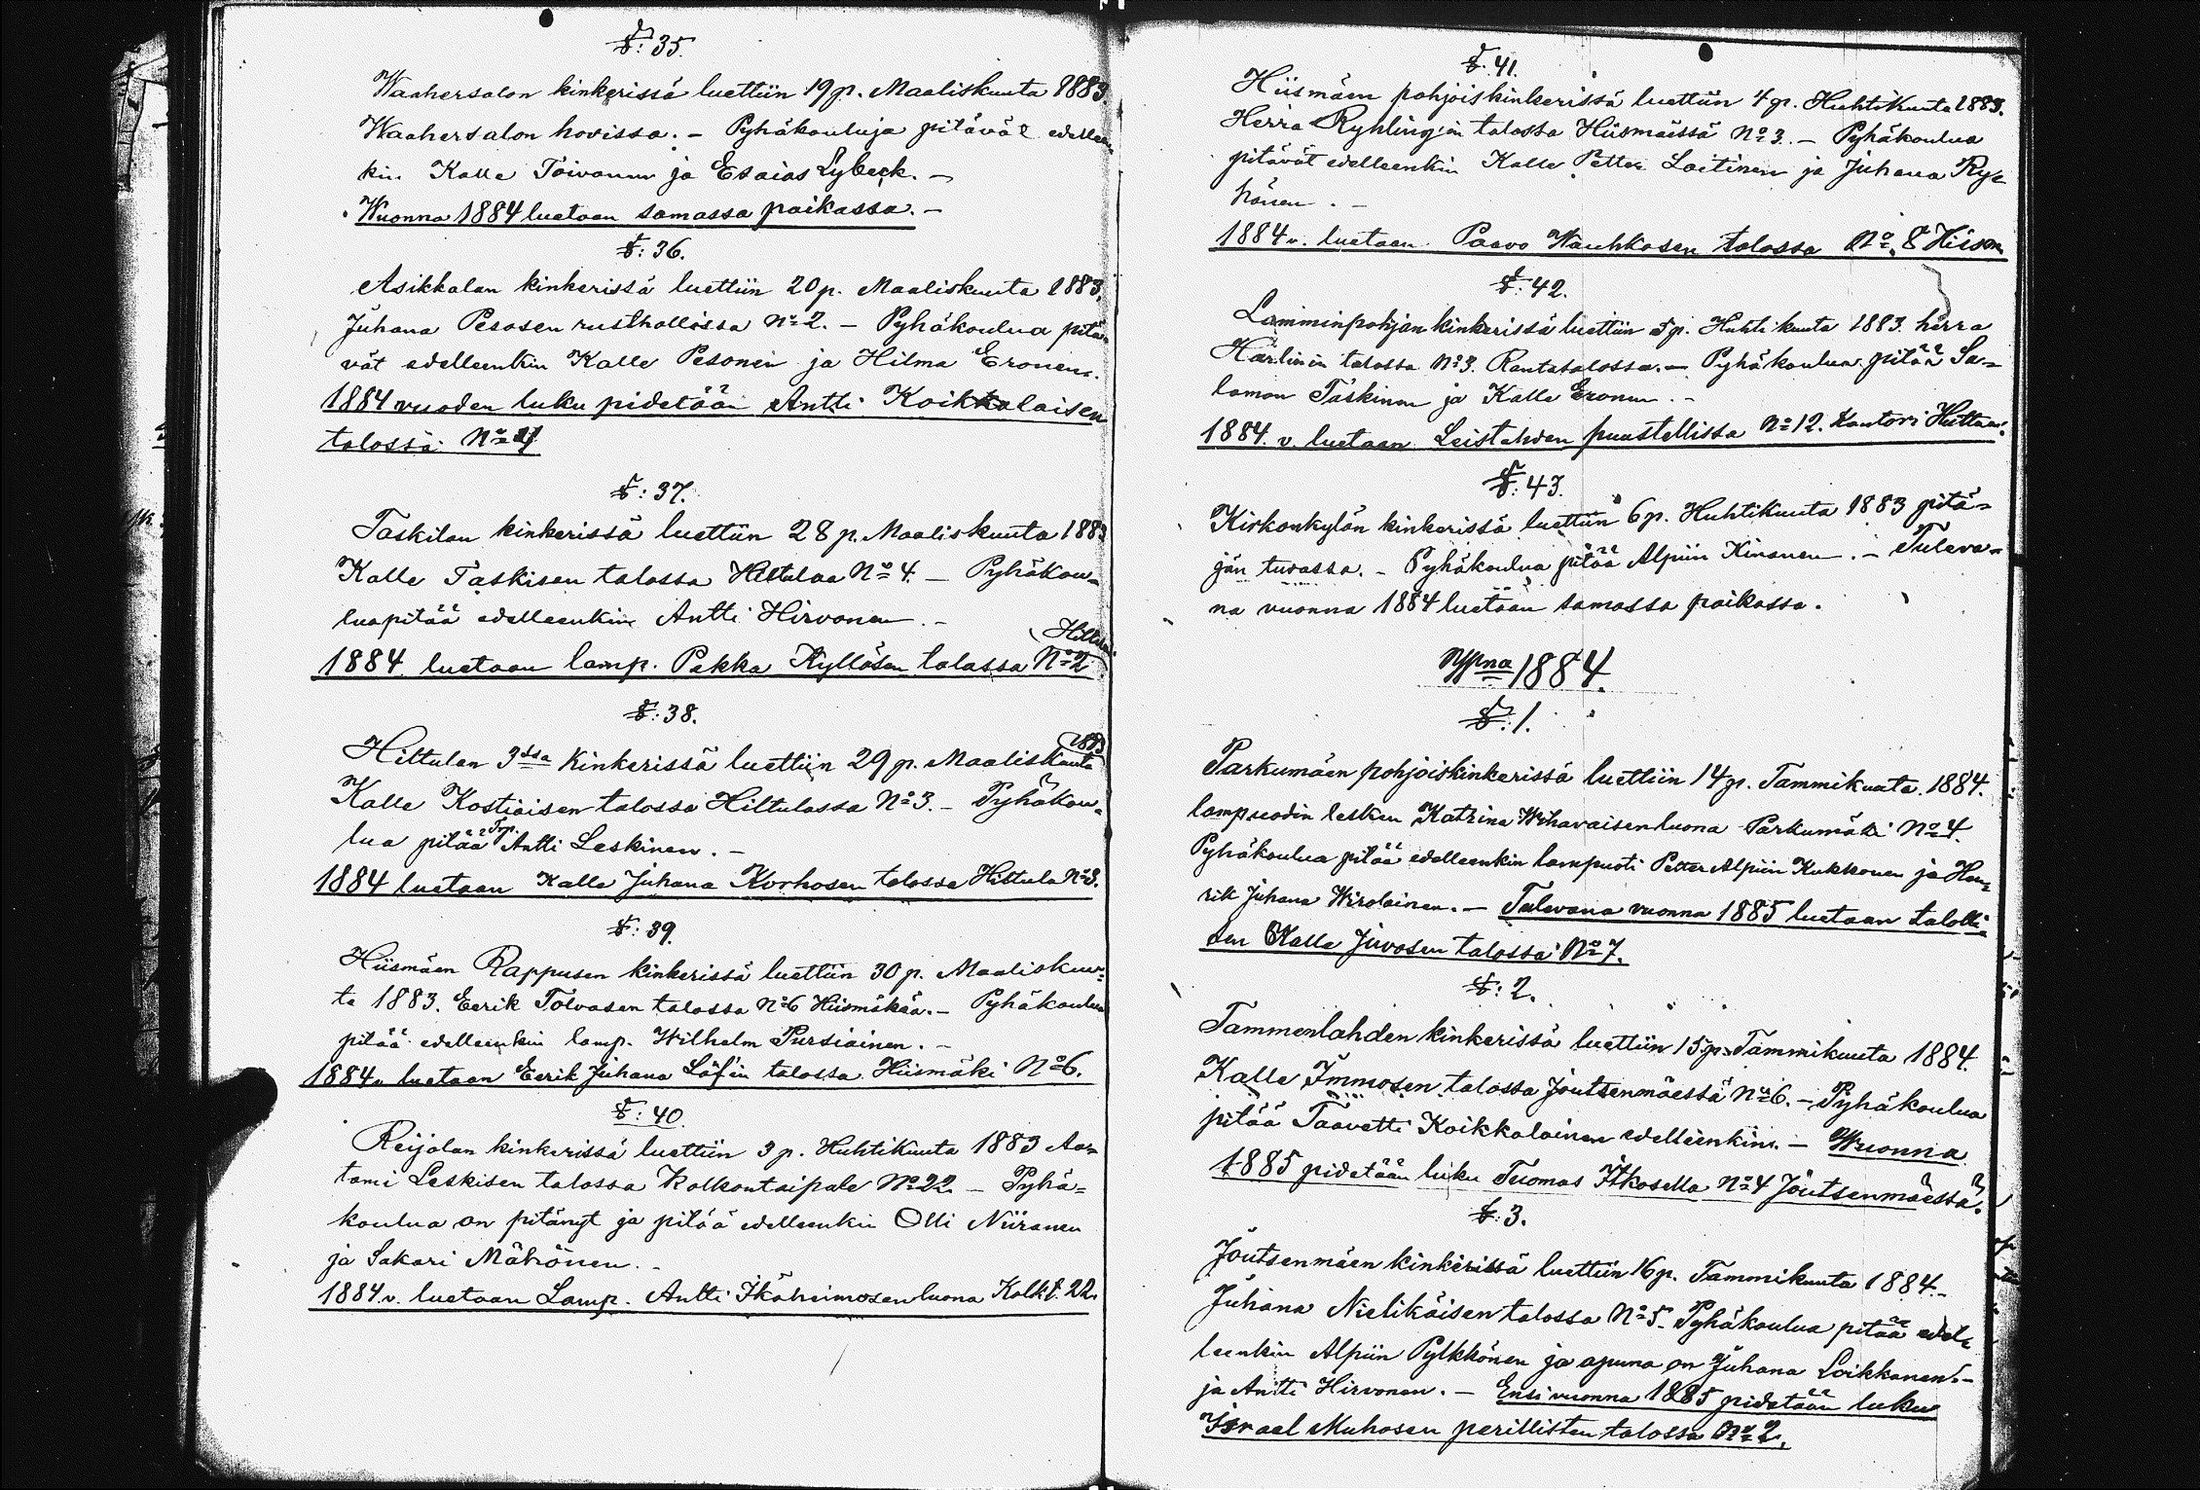 §: 35.
Waahersalon kinkerissä luettiin 19 p. Maaliskuuta 1883.
Waahersalon hovissa. - Pyhäkouluja pitävät edelleen-
kin Kalle Toivanen ja Esaias Lybeck. -
Wuonna 1884 luetaan samassa paikassa. -
§: 36.
Asikkalan kinkerissä luettiin 20 p. Maaliskuuta 1883,
Juhana Pesosen rusthollissa No 2. - Pyhäkoulua pitä-
vät edelleenkin Kalle Pesonen ja Hilma Eronen.
1884 vuoden luku pidetään Antti Koikkalaisen
talossa No 4
§: 37.
Taskilan kinkerissä luettiin 28 p. Maaliskuuta 1883
Kalle Taskisen talossa Hiltulaa No 4. - Pyhäkou-
lua pitää edelleenkin Antti Hirvonen. -
1884 luetaan lamp. Pekka Kyllösen talossa No 2
§: 38.
Hiltulan 3ssa kinkerissä luettiin 29 p. Maaliskuuta 1883
Kalle Kostiaisen talossa Hiltulassa No 3. - Pyhäkou-
lua pitää Antti Leskinen. -
1884 luetaan Kalle Juhana Korhosen talossa Hiltula No 3.
§: 39.
Hiismäen Rappusen kinkerissä luettiin 30 p. Maaliskuu-
ta 1883. Eerik Tolvasen talossa No 6 Hiismäkeä. - Pyhäkoulua
pitää edelleenkin lamp. Wilhelm Pursiainen. -
1884 v. luetaan Eerik Juhana Löf'in talossa Hiismäki No 6.
§: 40.
Reijolan kinkerissä luettiin 3 p. Huhtikuuta 1883 Aa-
tami Leskisen talossa Kolkontaipale No 22. - Pyhä-
koulua on pitänyt ja pitää edelleenkin Olli Niiranen
ja Sakari Mähönen. -
1884 v. luetaan Lamp. Antti Ikäheimosen luona Kolkt. 22.
§: 41.
Hiismäen pohjoiskinkerissä luettiin 4 p. Huhtikuuta 1883.
Herra Ryhling'in talossa Hiismäissä No 3. - Pyhäkoulua
pitävät edelleenkin Kalle Petter Laitinen ja Juhana Ry-
hänen. -
1884 v. luetaan Paavo Wauhkosen talossa No 8 Hiism.
§: 42.
Lamminpohjan kinkerissä luettiin 5 p. Huhtikuuta 1883. herra
Härlin'in talossa No 3. Rantatalossa. - Pyhäkoulua pitää Sa-
lamon Taskinen ja Kalle Eronen. -
1884 v. luetaan Leistahden puustellissa No 12. Kantori
§: 43.
Kirkonkylän kinkerissä luettiin 6 p. Huhtikuuta 1883 pitä-
jän tuvassa. - Pyhäkoulua pitää Alpiin Kinanen. - Tuleva-
na vuonna 1884 luetaan samassa paikassa.
Wnna 1884.
§: 1.
Parkumäen pohjoiskinkerissä luettiin 14 p. Tammikuuta 1884.
lampuodin lesken Katrina Wihavaisen luona Parkumäki No 4.
Pyhäkoulua pitää edelleenkin lampuoti Petter Alpiin Kukkonen ja Hen-
rik Juhana Wirolainen. - Tulevana vuonna 1885 luetaan talolli-
sen Kalle Juvosen talossa No 7.
§: 2.
Tammenlahden kinkerissä luettiin 15 p. Tammikuuta 1884.
Kalle Immosen talossa Joutsenmäessä No 6. - Pyhäkoulua
pitää Taavetti Koikkalainen edelleenkin. - Wuonna
1885 pidetään luku Tuomas Itkosella No 4 Joutsenmäessä.
§: 3.
Joutsenmäen kinkerissä luettiin 16 p. Tammikuuta 1884.-
Juhana Nielikäisen talossa No 5. Pyhäkoulua pitää edel-
leenkin Alpiin Pylkkönen ja apuna on Juhana Loikkanen -
ja Antti Hirvonen. - Ensi vuonna 1885 pidetään luku
Israel Muhosen perillisten talossa No 2.